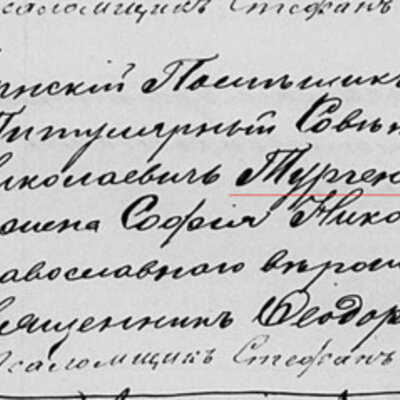 Псаломщикъ Стефанъ
нскій Помѣщикъ
Титулярный Совѣт
иколаевичъ Турген
жена Софія Нико
равославного вѣроис
вященникъ Ѳеодор
Псаломщикъ Стефанъ